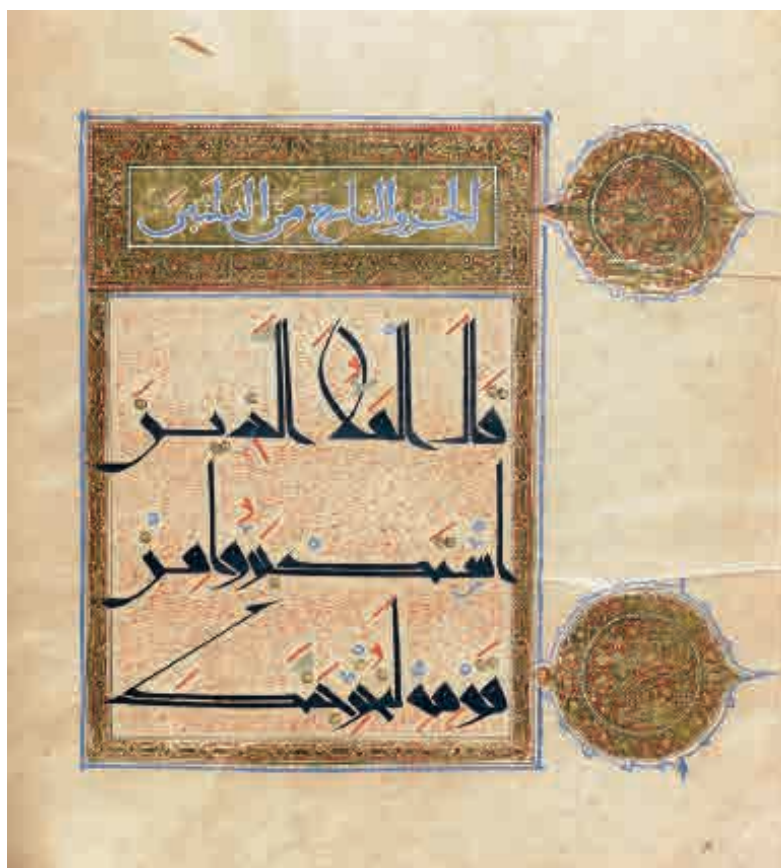 الجزو التاسع من الثلثين
قال الملا الذين
استكبروا من
قومه لنخرجنك